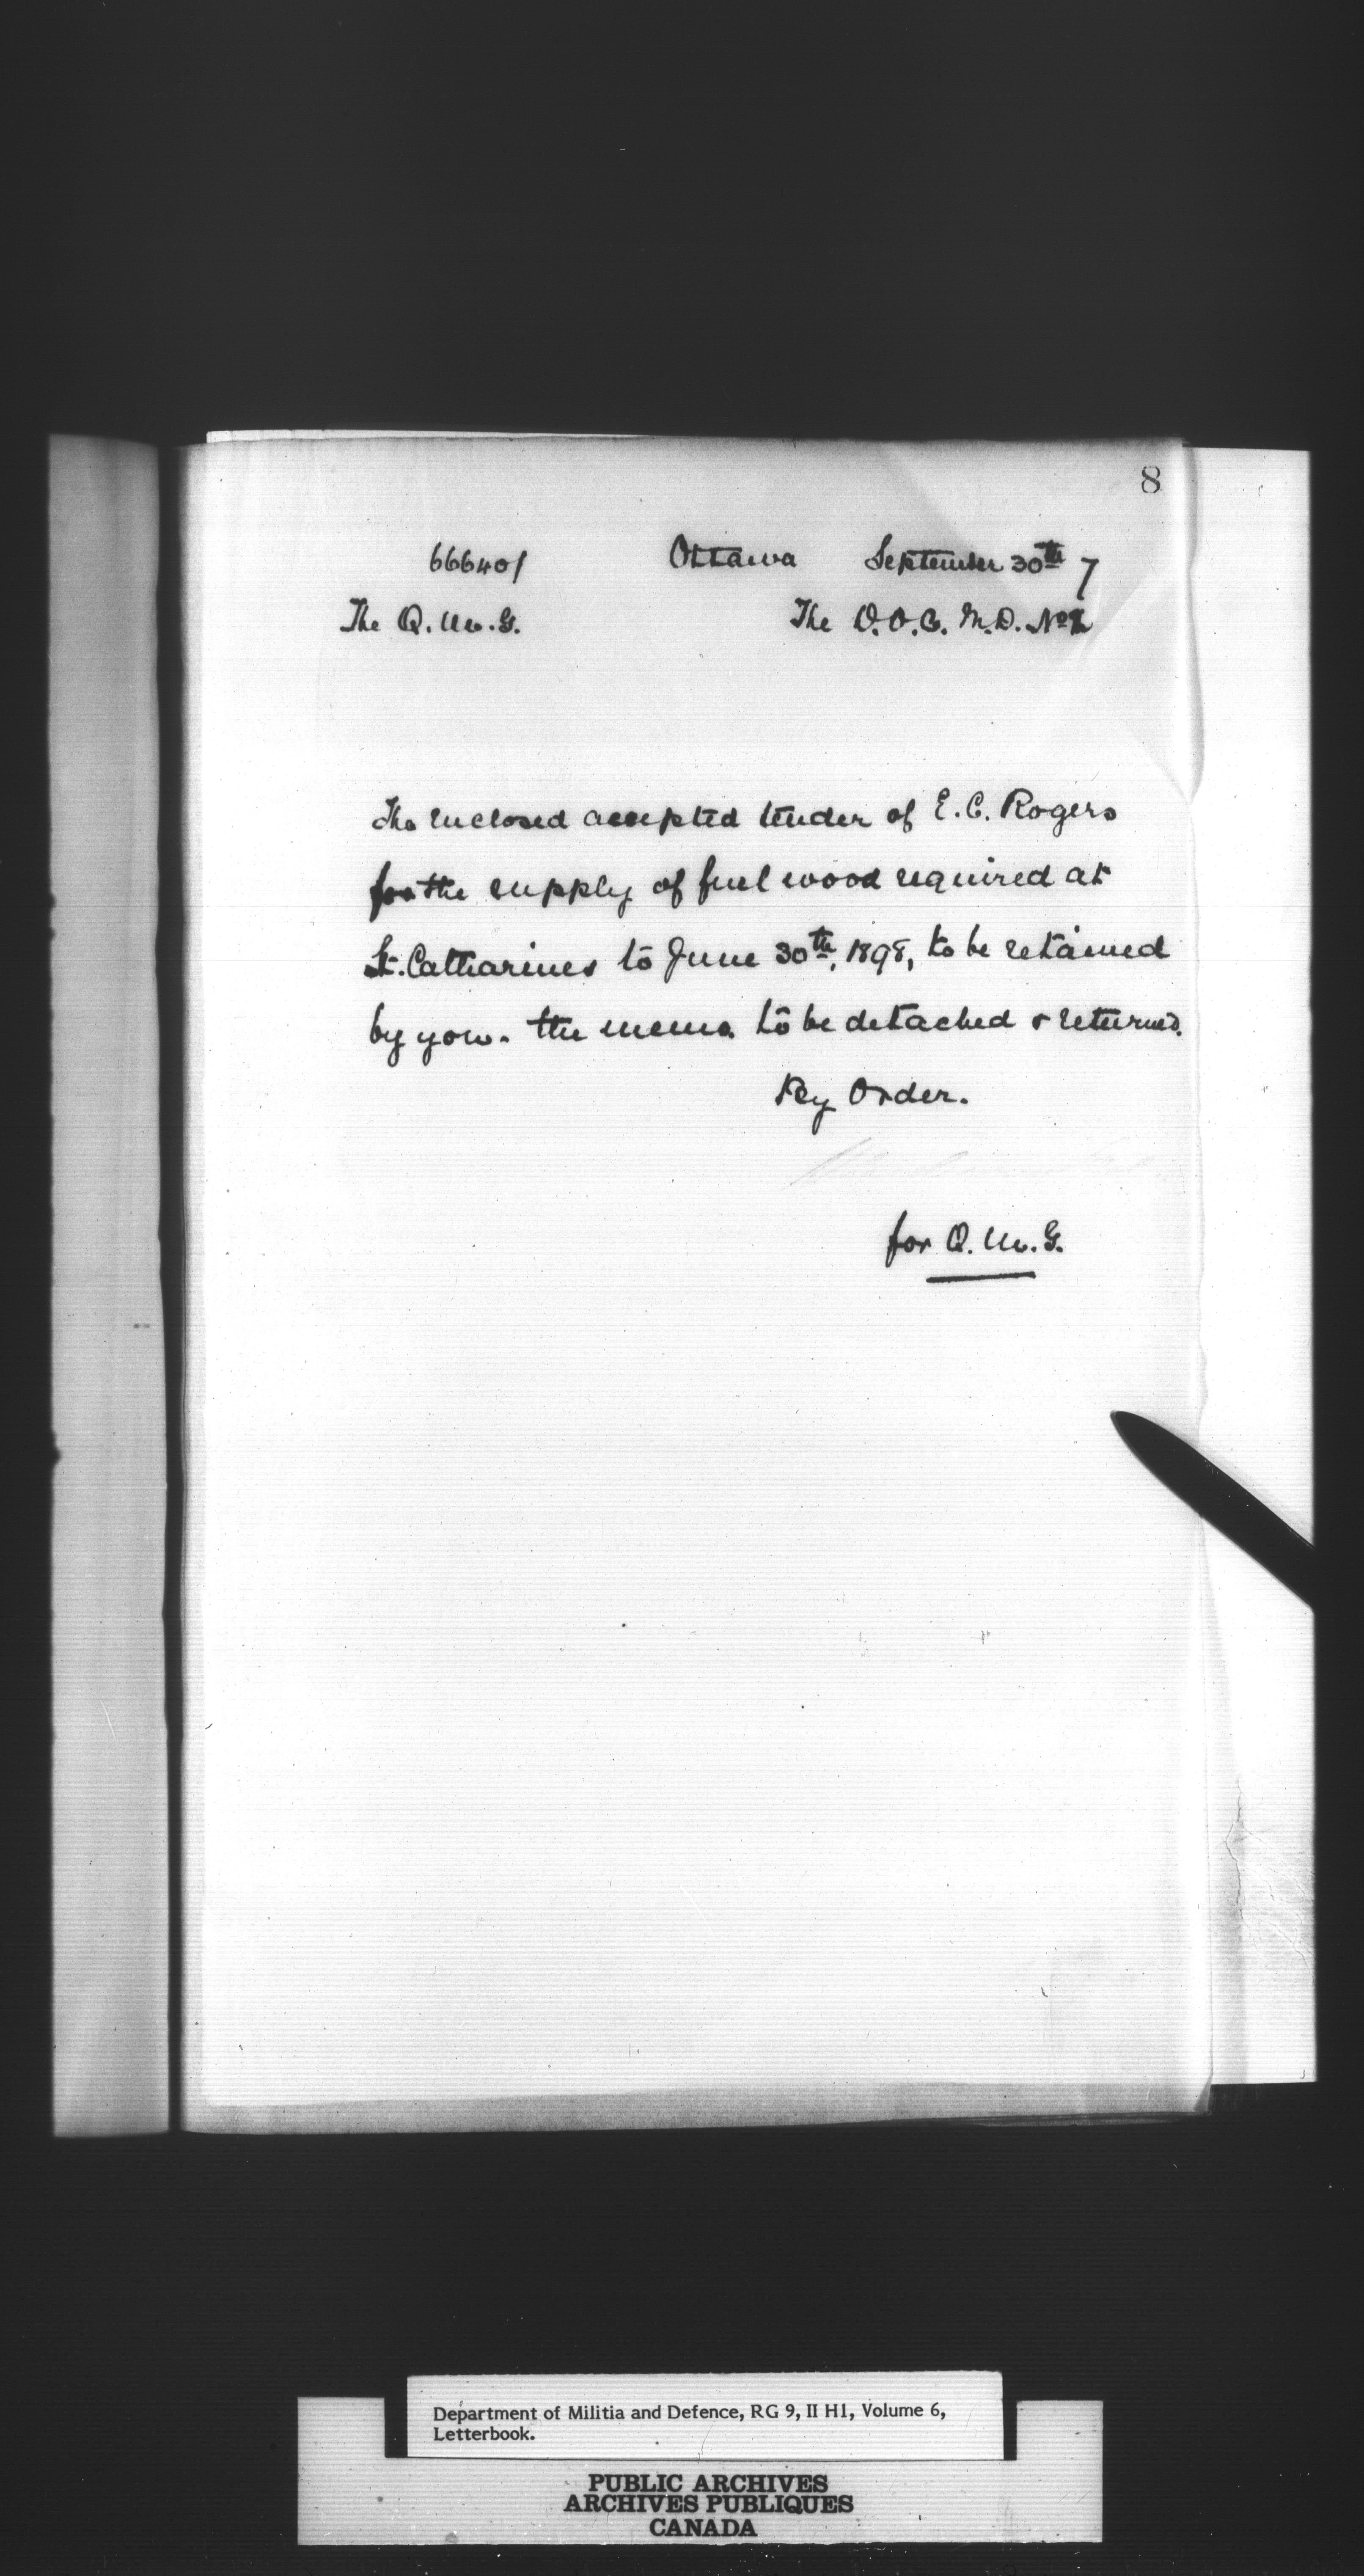 8
66640/ Ottawa September 30th 7
The Q.M.G. The D.O.C. M.D. No 2
The enclosed accepted tender of E.C. Rogers
for the supply of fuel wood required at
St. Catharines to June 30th, 1898, to be retained
by you. the memo. to be detached & returned.
By Order.
for Q.M.G.
Department of Militia and Defence, RG 9, II H1, Volume 6,
Letterbook.
PUBLIC ARCHIVES
ARCHIVES PUBLIQUES
CANADA